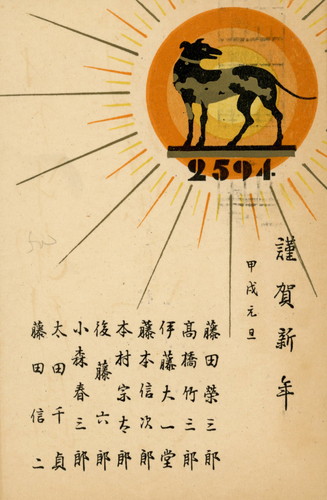 2594
謹賀新年
甲戌元旦
藤田榮三郎
高橋竹三郎
伊藤大一堂
藤本信次郎
本村宗太郎
後藤六郎
小森春三郎
太田千貞
藤田信二